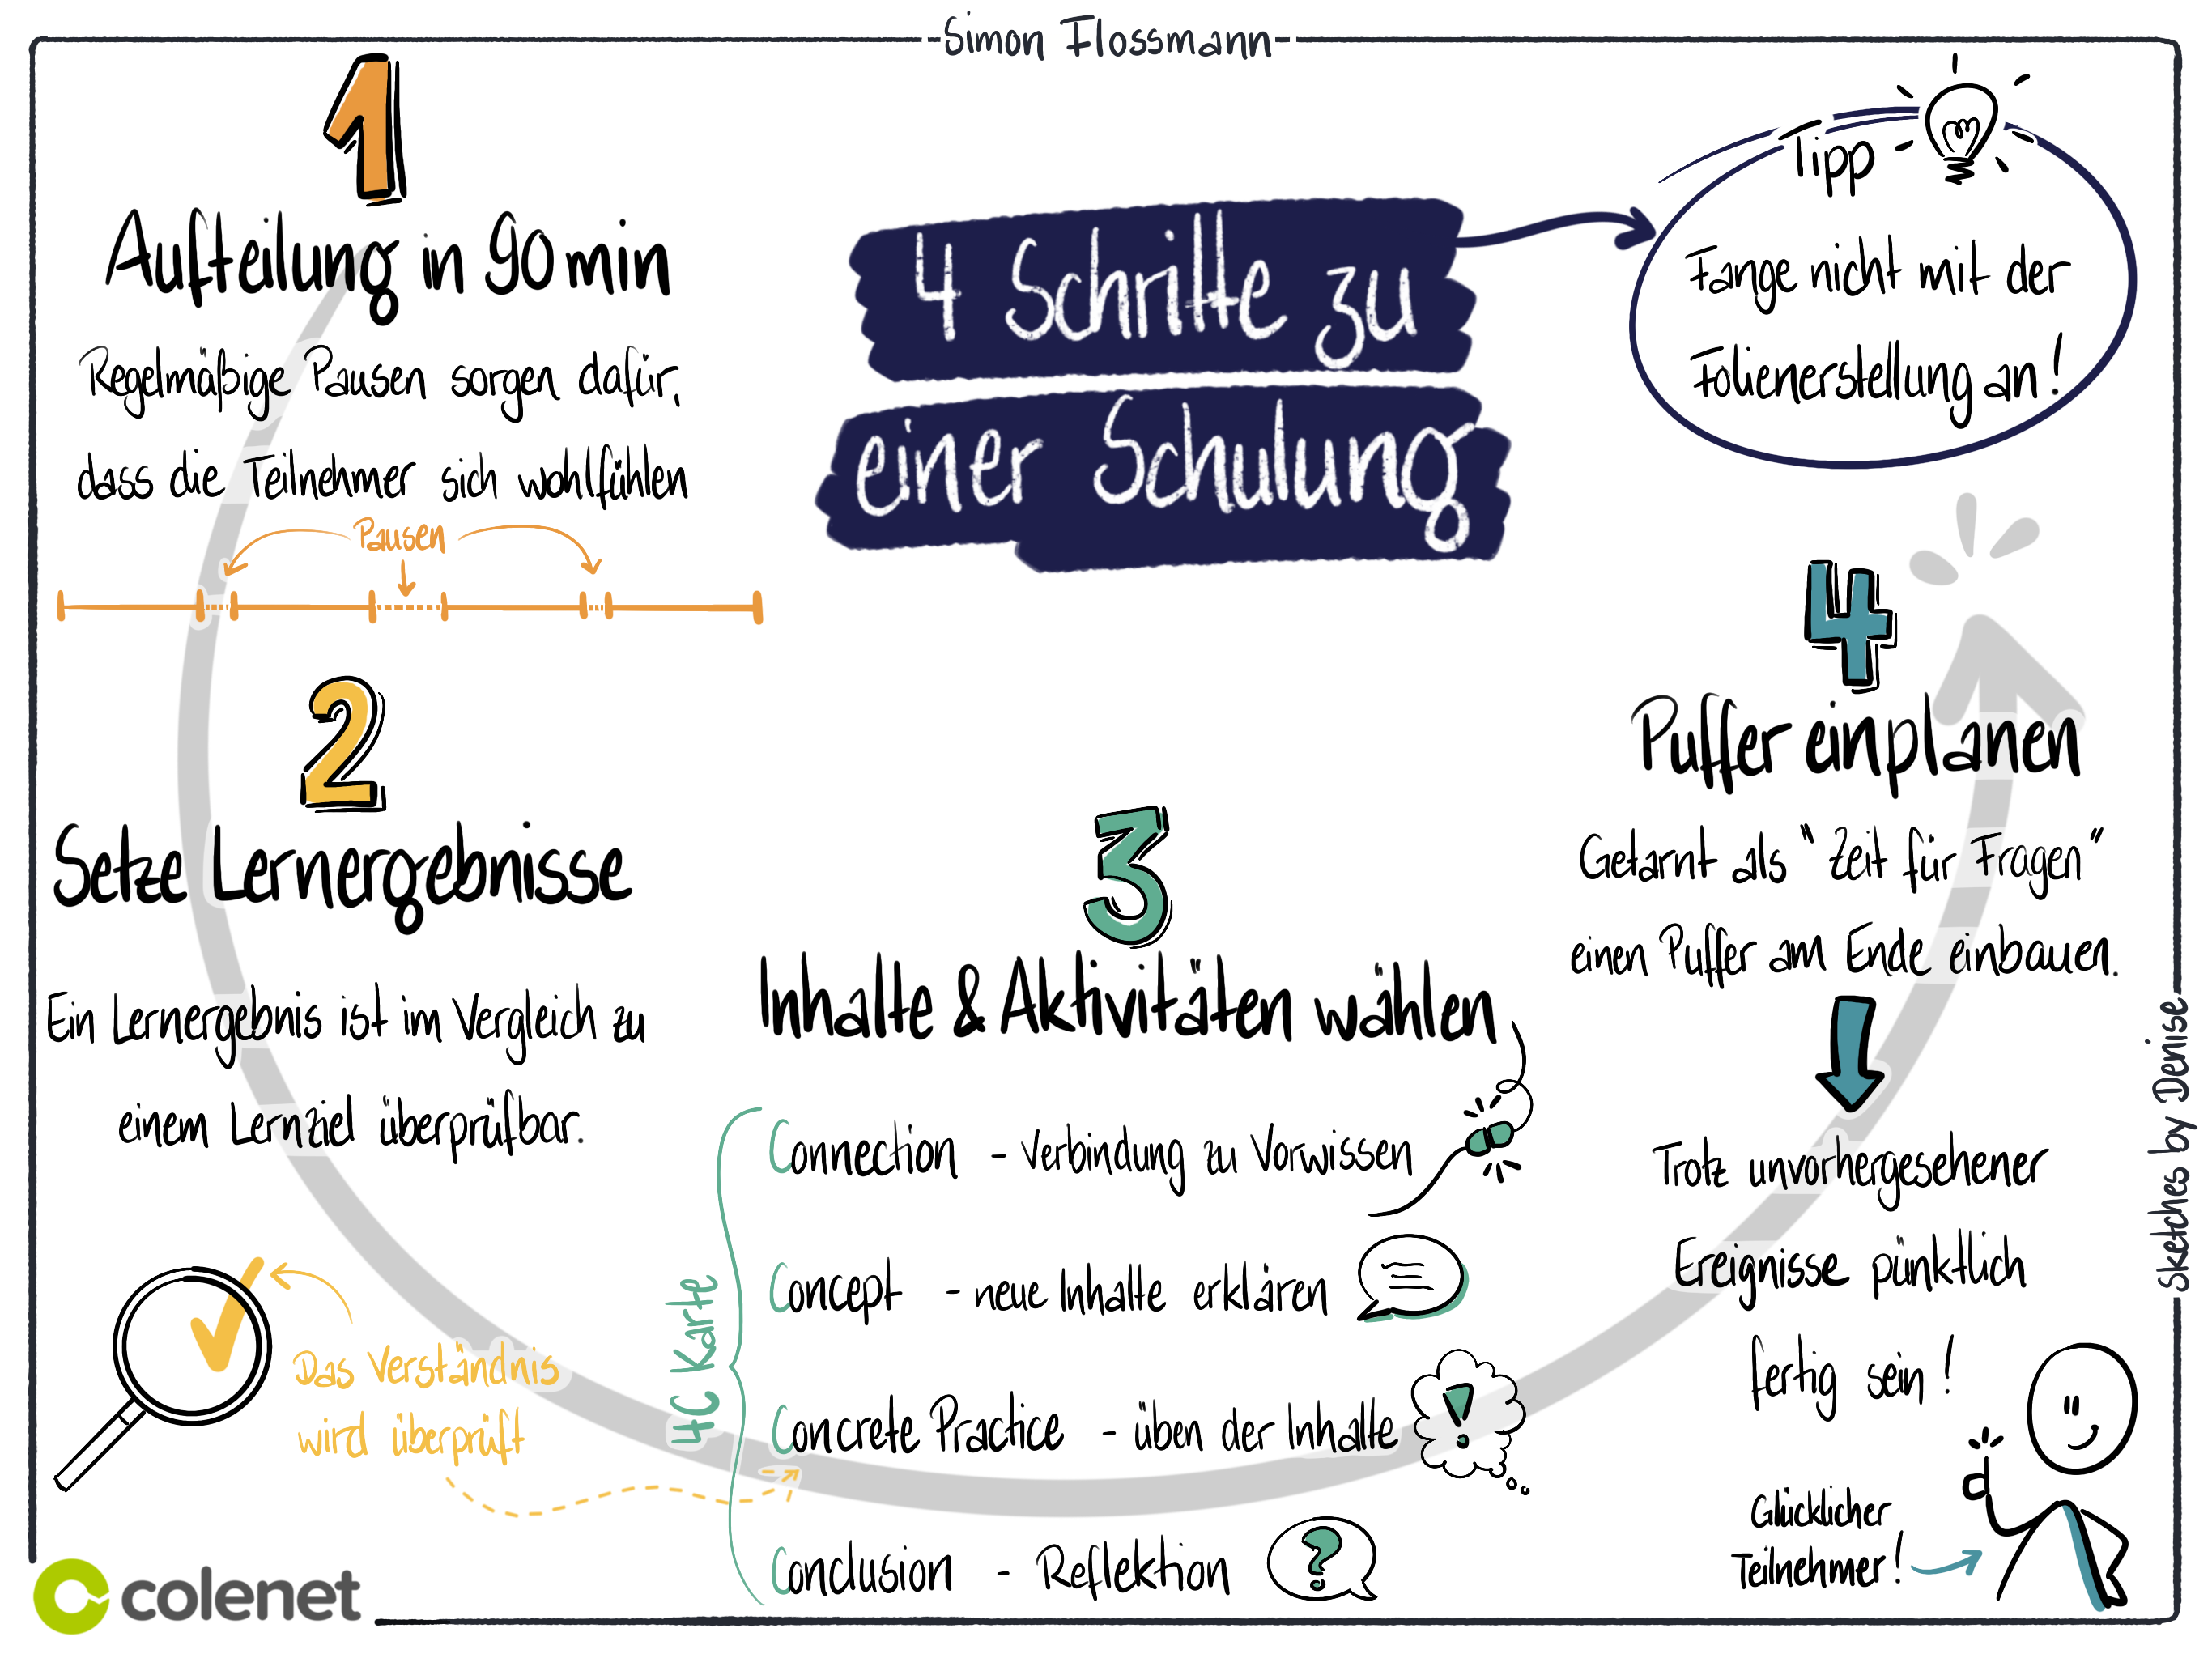 -Simon Flossmann-
4 Schritte zu
einer Schulung
Tipp
Fange nicht mit der
Folienerstellung an!
1
Aufteilung in 90 min
Regelmäßige Pausen sorgen dafür,
dass die Teilnehmer sich wohlfühlen
Pausen
2
Setze Lernergebnisse
Ein Lernergebnis ist im Vergleich zu
einem Lernziel überprüfbar.
Das Verständnis
wird überprüft
3
Inhalte & Aktivitäten wählen
4C Karte
Connection - Verbindung zu Vorwissen
Concept - neue Inhalte erklären
Concrete Practice - üben der Inhalte
!
Conclusion - Reflektion
?
4
Puffer einplanen
Getarnt als "Zeit für Fragen"
einen Puffer am Ende einbauen.
Trotz unvorhergesehener
Ereignisse pünktlich
fertig sein!
Glücklicher
Teilnehmer!
Sketches by Denise
colenet